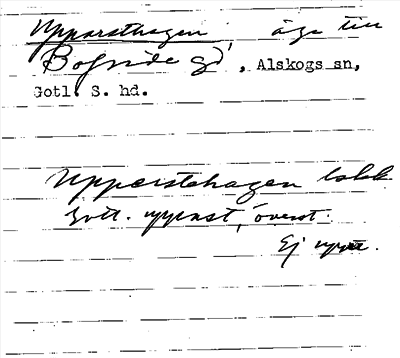 Upparsthagen äga till
Bofride gd, Alskogs sn,
Gotl. S. hd.
Upperstehagen
gotl. uppast, överst.
Ej uppe.